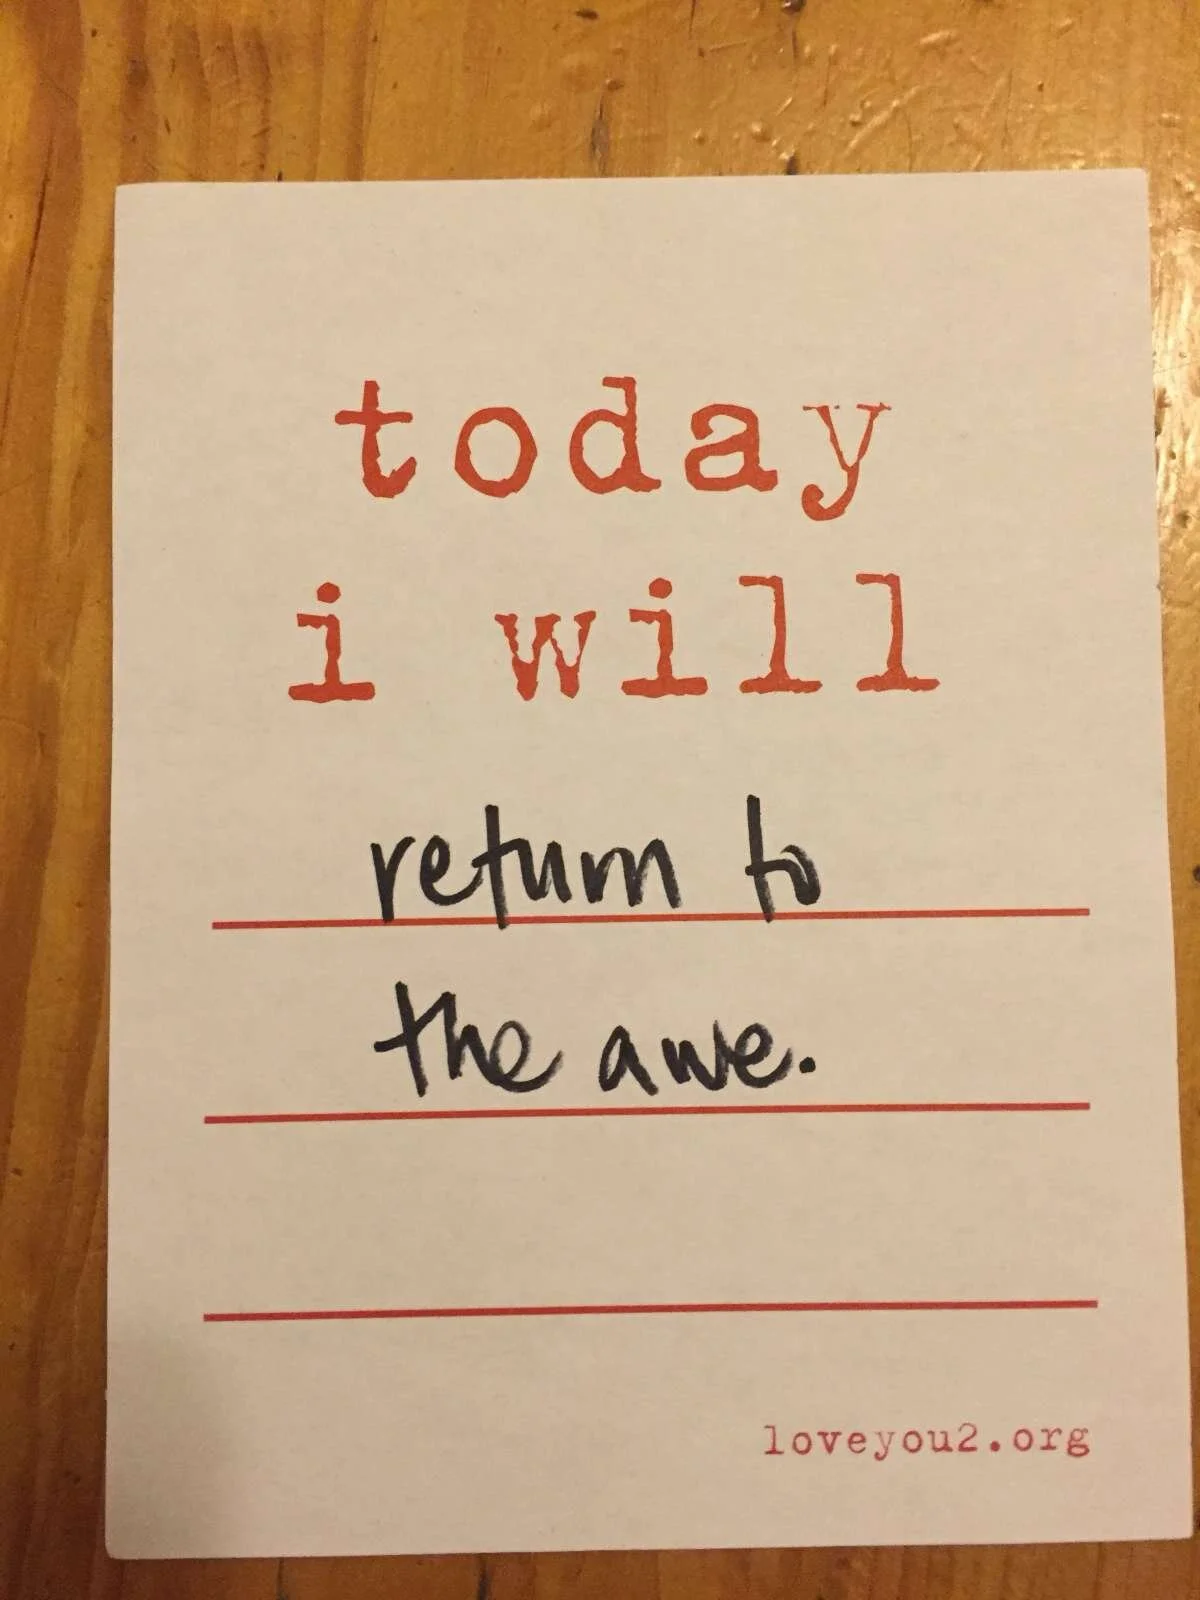 today
i will
return to
the awe.
loveyou2.org